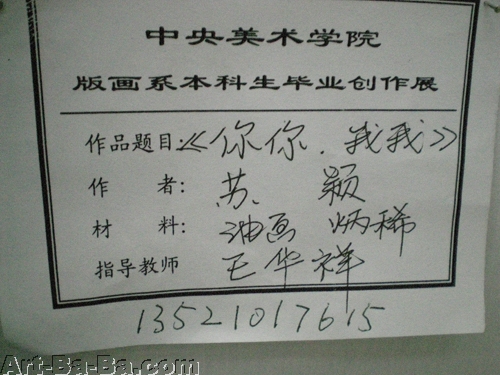 中央美术学院
版画系本科生毕业创作展
作品题目:《你你、我我》
作 者: 苏 颖
材 料: 油画 炳稀
指导教师 王华祥
13521017615
Art-Ba-Ba.com